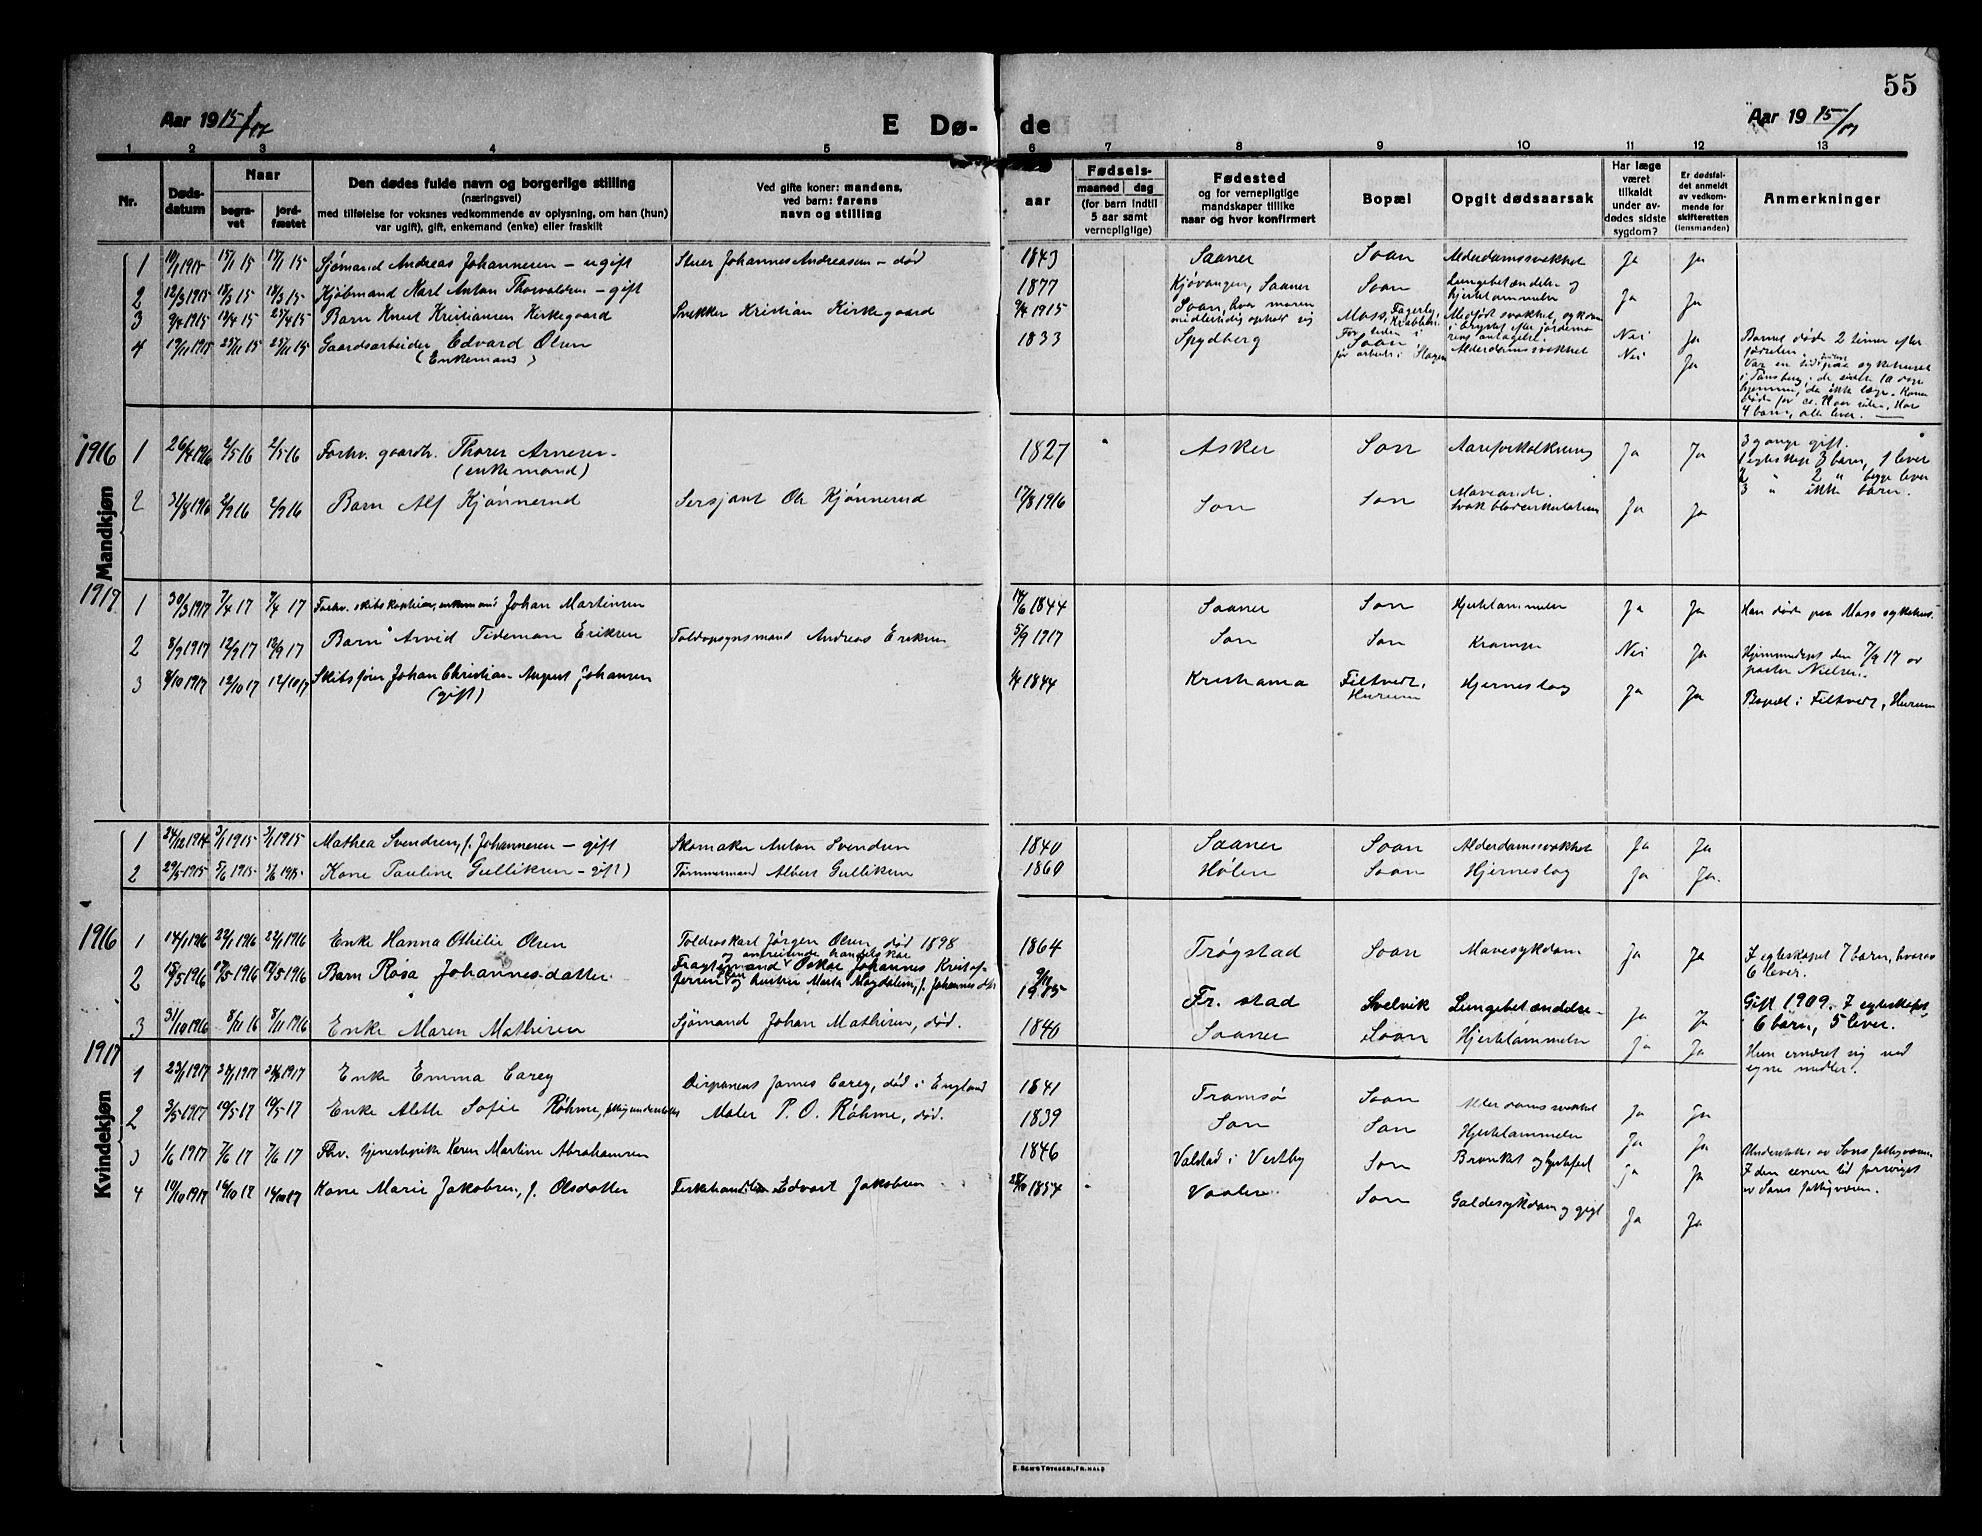 55
Aar 1915/17
E Dø-
de
Aar 1915/17
1 2 3 4 5 6 7 8 9 10 11 12 13
Nr.
Døds-
datum
Naar
begra-
vet
jord-
fæstet
Den dødes fulde navn og borgerlige stilling
(næringsvei)
med tilføielse for voksnes vedkommende av oplysning, om han (hun)
var ugift), gift, enkemand (enke) eller fraskilt
Ved gifte koner: mandens,
ved barn: farens
navn og stilling
aar
Fødsels-
maaned dag
(for barn indtil
5 aar samt
vernepligtige)
Fødested
og for vernepligtige
mandskaper tillike
naar og hvor konfirmert
Bopæl
Opgit dødsaarsak
Har læge
været
tilkaldt
under av-
dødes sidste
sygdom?
Er dødsfal-
det anmeldt
av vedkom-
mende for
skifteretten
(lensmanden)
Anmerkninger
Mandkjøn
1 10/1 1915 15/1 15 15/1 15 Sjømand Andreas Johannesen – ugift Stuer Johannes Andreasen – død 1843 Saaner Soon Alderdomssvakhet Ja Ja
2 12/3 1915 18/3 15 18/3 15 Kjøbmand Karl Anton Thorvaldsen – gift 1877 Kjøvangen, Saaner Soon Lungebetændelse og
hjertelammelse Ja Ja
3 9/4 1915 12/4 15 25/4 15 Barn Knut Kristiansen Kirkegaard Svekker Kristian Kirkegaard 9/4 1915 Soon, hvor moren
midlertidig ophold sig Moss, Fagerby, Medfødt svakhet, og
i brystet efter jordemo
rens antagelse. Nei Ja Barnet døde 2 timer efter
fødselen.
4 19/11 1915 25/11 15 25/11 15 Gaardsarbeider Edvard Olsen
(Enkemand) 1833 Spydberg Soon
før arbeidr i Slagen Alderdomssvakhet Nei Ja Var en tid paa sykehuset
i Tønsberg, de sidste 10 dage
hjemme, da ikke læge. Konen
døde for ca. 11 aar siden. Har
4 barn, alle lever.
1916
1 26/4 1916 2/5 16 2/5 16 Forhv. gaardb. Thorer Arnesen
(enkemand) 1827 Asker Son Aareforkalkning Ja Ja 3 gange gift.
1 egteskap 3 barn, 1 lever
2 " 2 " begge lever
3 " ikke barn.
2 31/8 1916 2/9 16 2/9 16 Barn Alf Kjønnerud Sersjant Ole Kjønnerud 17/8 1916 Son Son Maveonde.
Svak blodcirkulation Ja Ja
1917
1 30/3 1917 7/4 17 7/4 17 Forhv. skibskaptein, enkemand Johan Martinsen 1844 Saaner Son Hjertelammelse Ja Ja Han døde paa Moss sykehus.
2 8/9 1917 12/9 17 12/9 17 Barn Arvid Tideman Eriksen Toldopsynsmand Andreas Eriksen 5/9 1917 Son Son Krampe Nei Ja Hjemmedøpt den 7/9 17 av
pastor Nielsen.
3 8/10 1917 12/10 17 12/10 17 Skibsfører Johan Christian August Johansen
(gift) 1844 Kristiania Filtvedt,
Hurum Hjerneslag Ja Ja Bopæl i Filtvedt, Hurum
Kvindekjøn
1 24/12 1914 3/1 1915 3/1 1915 Mathea Svendsen, f. Johannesen – gift Skomaker Anton Svendsen 1840 Saaner Soon Alderdomssvakhet Ja Ja
2 29/5 1915 5/6 1915 5/6 1915 Kone Pauline Gulliksen – gift) Tømmermand Albert Gulliksen 1860 Hølen Soon Hjerneslag Ja Ja.
1916
1 14/1 1916 22/1 1916 22/1 1916 Enke Hanna Othilie Olsen Toldroskarl Jørgen Olsen, død 1898 1864 Trøgstad Soon Mavesykdom Ja Ja I egteskapet 7 barn, hvorav
6 lever.
2 15/5 1916 17/5 1916 17/5 1916 Barn Rosa Johannesdatter Fragtemand Oskar Johannes Kristof-
fersen og hustru Marta Magdalena, f. Johannesdtr 1915 Fr. stad Svelvik Lungebetændelse Ja Ja Gift 1909. I egteskapet
6 barn, 5 lever.
3 31/10 1916 8/11 16 8/11 1916 Enke Maren Mathisen Sjømand Johan Mathisen, død. 1840 Saaner Soon Hjertelammelse Ja Ja Hun ernæret sig ved
egne midler.
1917
1 23/1 1917 1917 1917 Enke Emma Carey Disponent James Carey, død i England 1841 Tromsø Soon Alderdomssvakhet Ja Ja
2 3/5 1917 10/5 17 10/5 17 Enke Alette Sofie Røhme, Maler P. O. Røhme, død. 1839 Son Son Hjertelammelse Ja Ja Understøttet av Sons fattigvæsen.
3 1/6 1917 7/6 17 7/6 17 Fhv. tjenestepike Karen Martine Abrahamsen 1846 Valstad i Vestby Son Bronkit og hjertefeil Ja Ja I den senere tid forsørget
av Sons fattigvæsen.
4 10/10 1917 14/10 17 14/10 17 Kone Marie Jakobsen, f. Olsdatter Fiskehandler Edvart Jakobsen 1854 Vaaler Son Galdesykdom og gigt Ja Ja
E. Sem's Trykkeri, Fr.hald